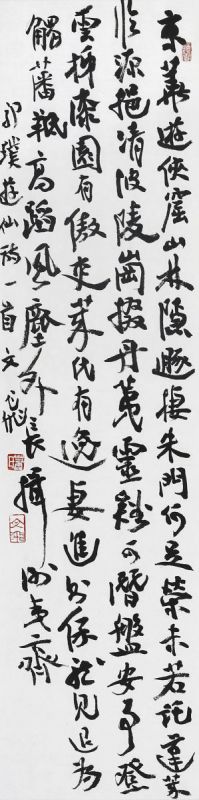 京華遊俠窟山林隱遯棲朱門何足榮未若託蓬萊
臨源挹清波陵崗掇丹荑靈谿可潛盤安事登
雲梯漆園有傲吏萊氏有逸妻進則保龍見退為
觸藩羝高蹈風塵外長揖謝夷齊
郭璞遊仙詩一首文